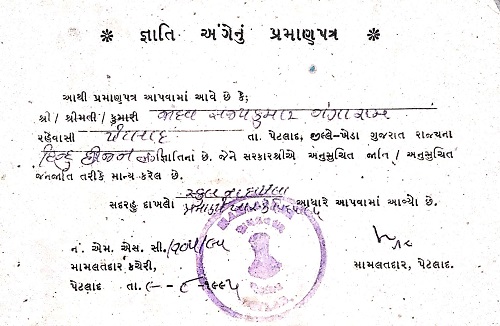 * જ્ઞાતિ અંગેનું પ્રમાણપત્ર *
આથી પ્રમાણપત્ર આપવામાં આવે છે કે;
શ્રી / શ્રીમતી / કુમારી જાદવ સંજયકુમાર ગંગારામ
રહેવાસી પેટલાદ તા. પેટલાદ, જીલ્લે-ખેડા ગુજરાત રાજ્યના
હિન્દુ જ્ઞાતિનાં છે. જેને સરકારશ્રીએ અનુસુચિત જાતિ / અનુસુચિત
જનજાતિ તરીકે માન્ય કરેલ છે.
સદરહુ દાખલો સ્કુલ ના દાખલા
આધારે આપવામાં આવ્યો છે.
નં. એમ. એસ. સી./
મામલતદાર કચેરી,
મામલતદાર, પેટલાદ.
પેટલાદ તા.